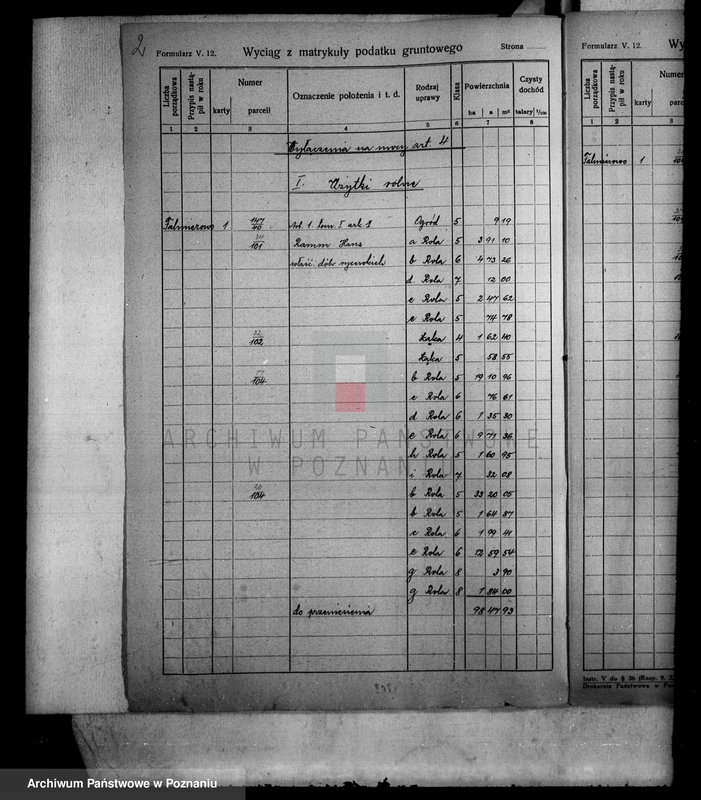 2
Formularz V. 12. Wyciąg z matrykuły podatku gruntowego Strona
Liczba porządkowa Przypis nastąpił w roku Numer karty parceli Oznaczenie położenia i t. d. Rodzaj uprawy Klasa Powierzchnia ha a m² Czysty dochód talary 1/100
1 2 3 4 5 6 7 8
Wyłączenia na mocy art. 4
I. Użytki rolne
1 147/40 Art. 1. tom. I ark. 1 Ogród 5 9 19
101 Ramm Hans a Rola 5 3 91 10
właść. dóbr rycerskich b Rola 6 4 73 26
d Rola 7 12 00
e Rola 5 2 47 62
e Rola 5 74 78
102 Łąka 4 1 62 40
Łąka 5 58 55
104 b Rola 5 19 10 96
c Rola 6 76 61
d Rola 6 1 35 30
e Rola 6 9 71 36
h Rola 5 1 60 95
i Rola 7 32 08
20/104 b Rola 5 33 20 05
b Rola 5 1 64 87
c Rola 6 1 99 41
e Rola 6 12 59 54
g Rola 8 3 90
g Rola 8 1 84 00
do przeniesienia 98 47 93
Formularz V. 12.
Liczba porządkowa Przypis nastąpił w roku Numer karty parceli
1 2 3
1
Instr. V do § 36 (Rozp. 9. X
Drukarnia Państwowa w Poz
ARCHIWUM PAŃSTWOWE
W POZNANIU
Archiwum Państwowe w Poznaniu